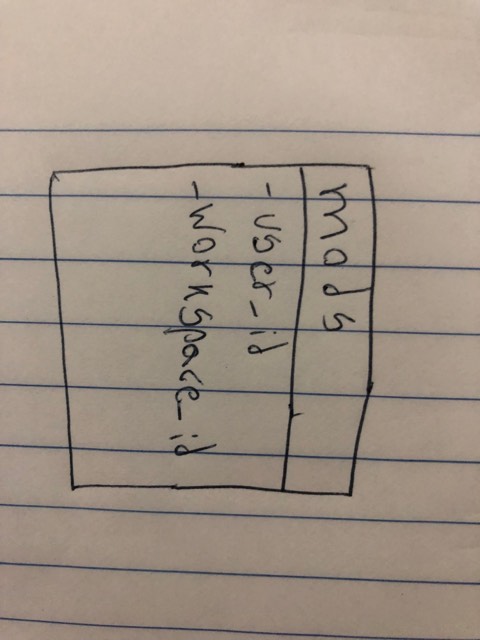 mods
- user_id
- workspace_id